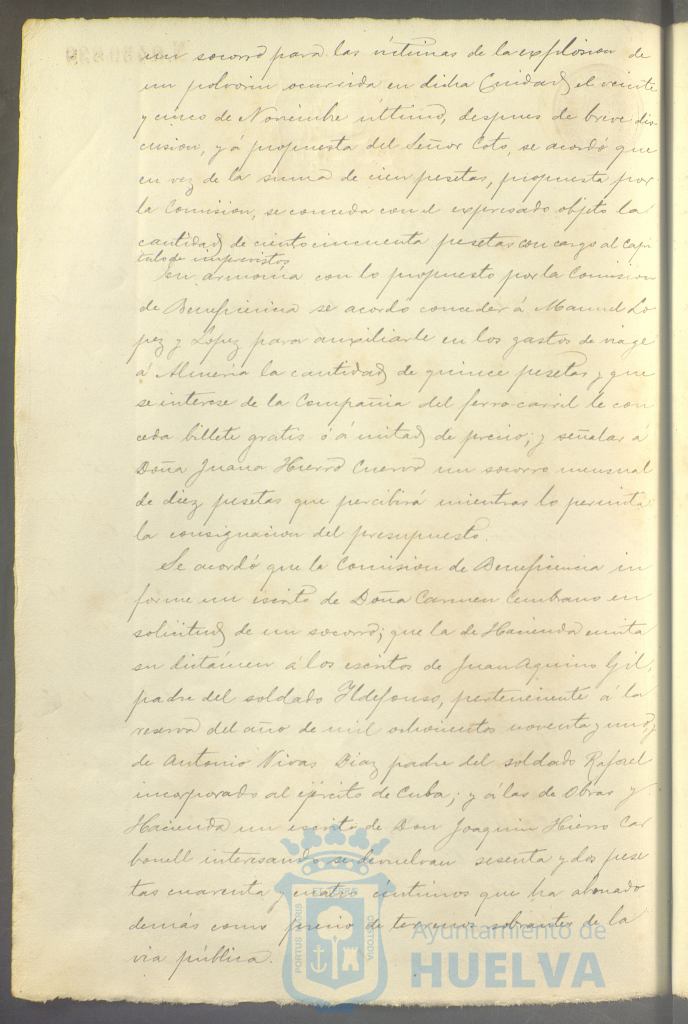 un socorro para las víctimas de la explosion de
un polvorin ocurrida en dicha Ciudad el veinte
y cinco de Noviembre último, despues de breve dis-
cusion, y á propuesta del Señor Coto, se acordó que
en vez de la suma de cien pesetas, propuesta por
la Comision, se conceda con el expresado objeto la
cantidad de ciento cincuenta pesetas con cargo al Capi
tulo de imprevistos
En armonía con lo propuesto por la Comision
de Beneficencia se acordo conceder á Manuel Lo
pez y Lopez para auxiliarle en los gastos de viage
á Almeria la cantidad de quince pesetas y que
se interese de la Compañia del ferro-carril le con
ceda billete gratis ó á mitad de precio; y señalar á
Doña Juana Hierro Cuervo un socorro mensual
de diez pesetas que percibirá mientras lo permita
la consignacion del presupuesto.
Se acordó que la Comision de Beneficencia in
forme un escrito de Doña Carmen Cembrano en
solicitud de un socorro; que la de Hacienda emita
su dictámen á los escritos de Juan Aquino Gil,
padre del soldado Ildefonso, perteneciente á la
reserva del año de mil ochocientos noventa y uno, y
de Antonio Vivas Diaz padre del soldado Rafael
incorporado al ejército de Cuba; y á las de Obras y
Hacienda un escrito de Don Joaquin Hierro Car
bonell interesando se devuelvan sesenta y dos pese
tas cuarenta y cuatro centimos que ha abonado
demás como precio de terrenos sobrantes de la
via pública.
PORTUS MARIS
CUSTODIA
Ayuntamiento de
HUELVA